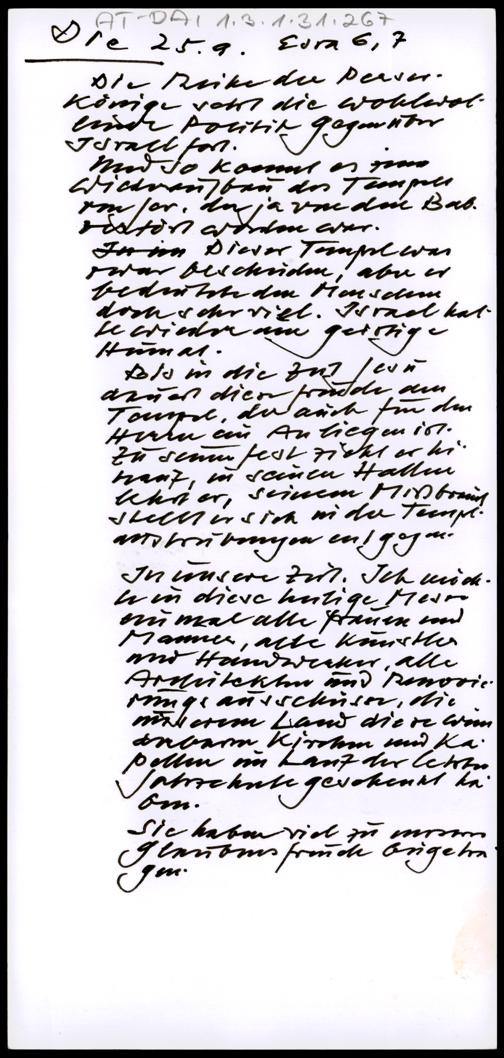 AT-DAI 1.3.1.31.267
Die 25.9. Esra 6,7
Die Reihe der Perser-
könige setzt die wohlwol-
lende Politik gegenüber
Israel fort.
Und so kommt es zum
Wiederaufbau des Tempels
von Jer. der ja von den Bab.
zerstört worden war.
Dieser Tempel war
zwar bescheiden, aber er
bedeutete den Menschen
doch sehr viel. Israel hat-
te wieder eine geistige
Heimat.
Bis in die Zeit Jesu
dauert diese Freude am
Tempel, der auch für den
Herrn ein Anliegen ist.
Zu seinem Fest zieht er hi-
nauf, in seinen Hallen
lehrt er, seinem Mißbrauch
stellt er sich in der Tempel-
austreibungen entgegen.
In unsere Zeit. Ich möch-
te in diese heilige Messe
einmal alle Frauen und
Männer, alle Künstler
und Handwerker, alle
Architekten und Renovie-
rungsausschüsse, die
unserem Land diese wun
derbaren Kirchen und Ka-
pellen im Lauf der letzten
Jahrzehnte geschenkt ha-
ben.
Sie haben viel zu unserer
Glaubensfreude beigetra-
gen.